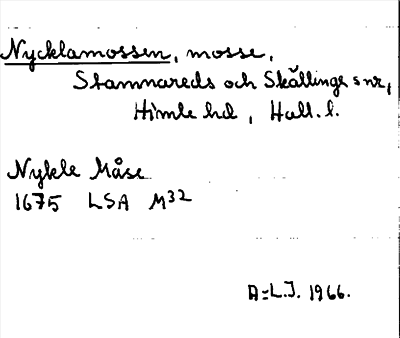 Nycklamossen, mosse,
Stamnareds och Skällinge snr,
Himle hd, Hall. l.
Nykle Måse
1675 LSA M32
A=L.J. 1966.